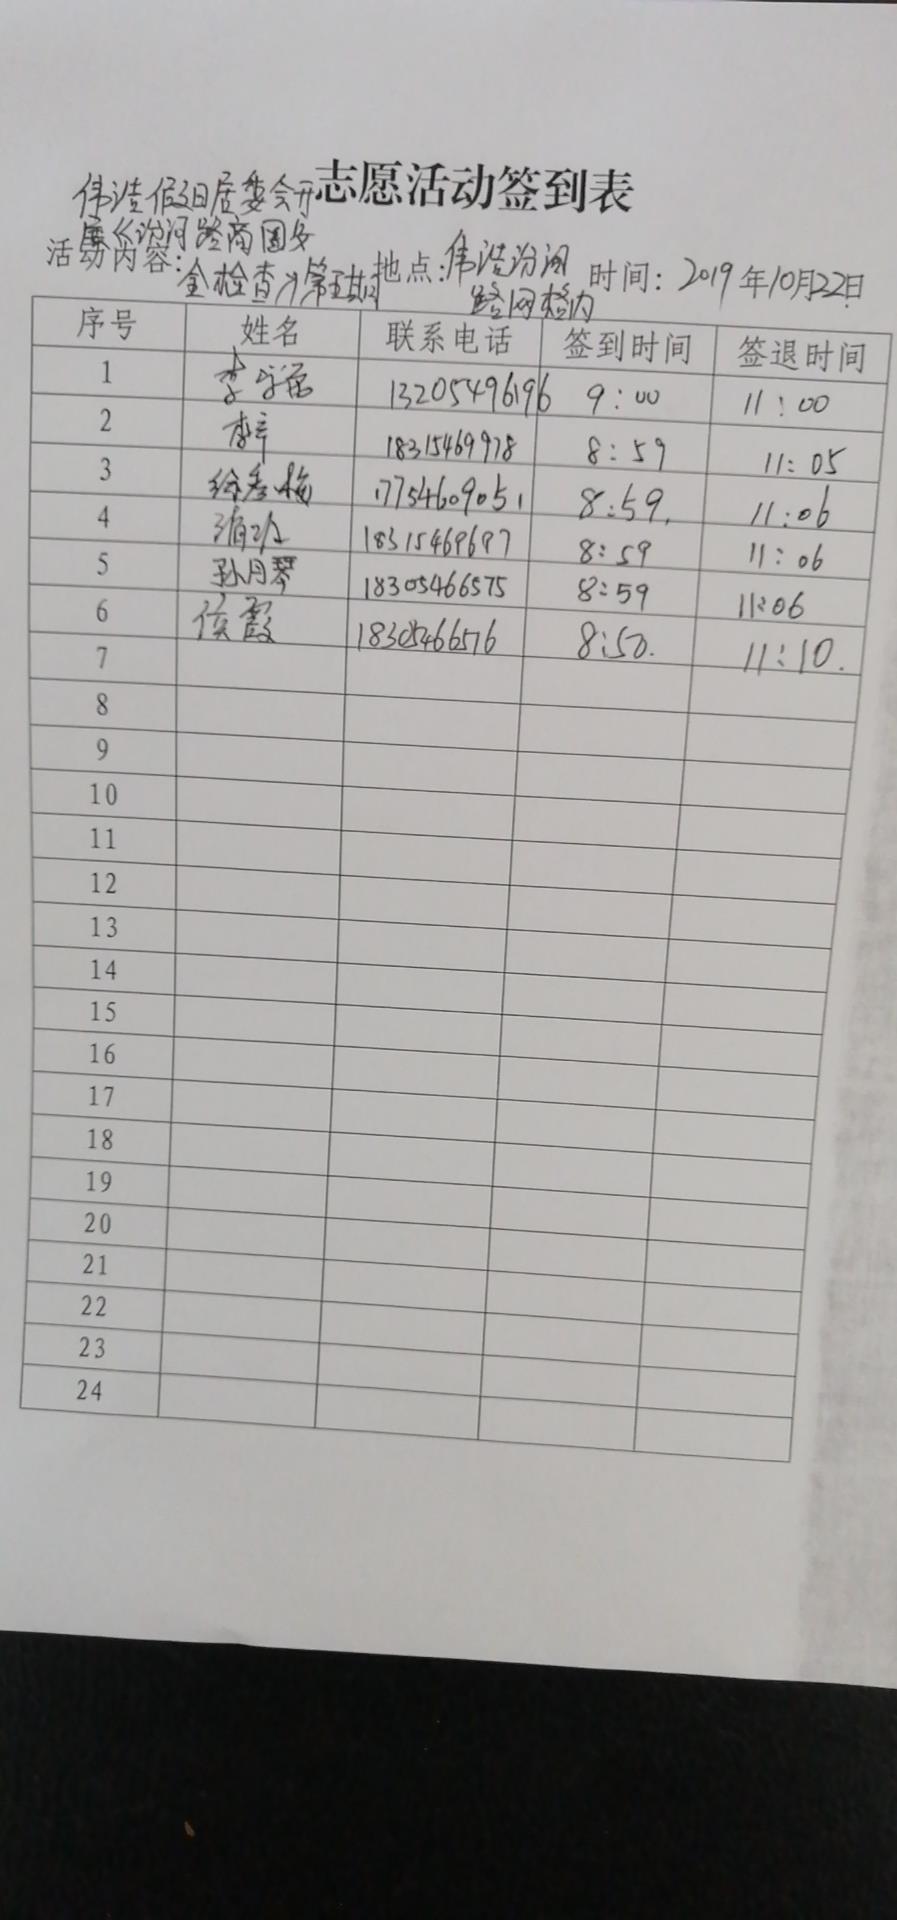 志愿活动签到表
伟浩假日居委会开
展《汾河路商圈安
活动内容:
全检查》第五期
地点:伟浩汾河
路网格内
时间: 2019年10月22日
序号 姓名 联系电话 签到时间 签退时间
1 李 13205496196 9:00 11:00
2 18315469978 8:59 11:05
3 徐秀梅 17754609051 8:59. 11:06
4 18315469697 8:59 11:06
5 孙月琴 18305466575 8:59 11:06
6 侯霞 18305466576 8:50. 11:10.
7
8
9
10
11
12
13
14
15
16
17
18
19
20
21
22
23
24